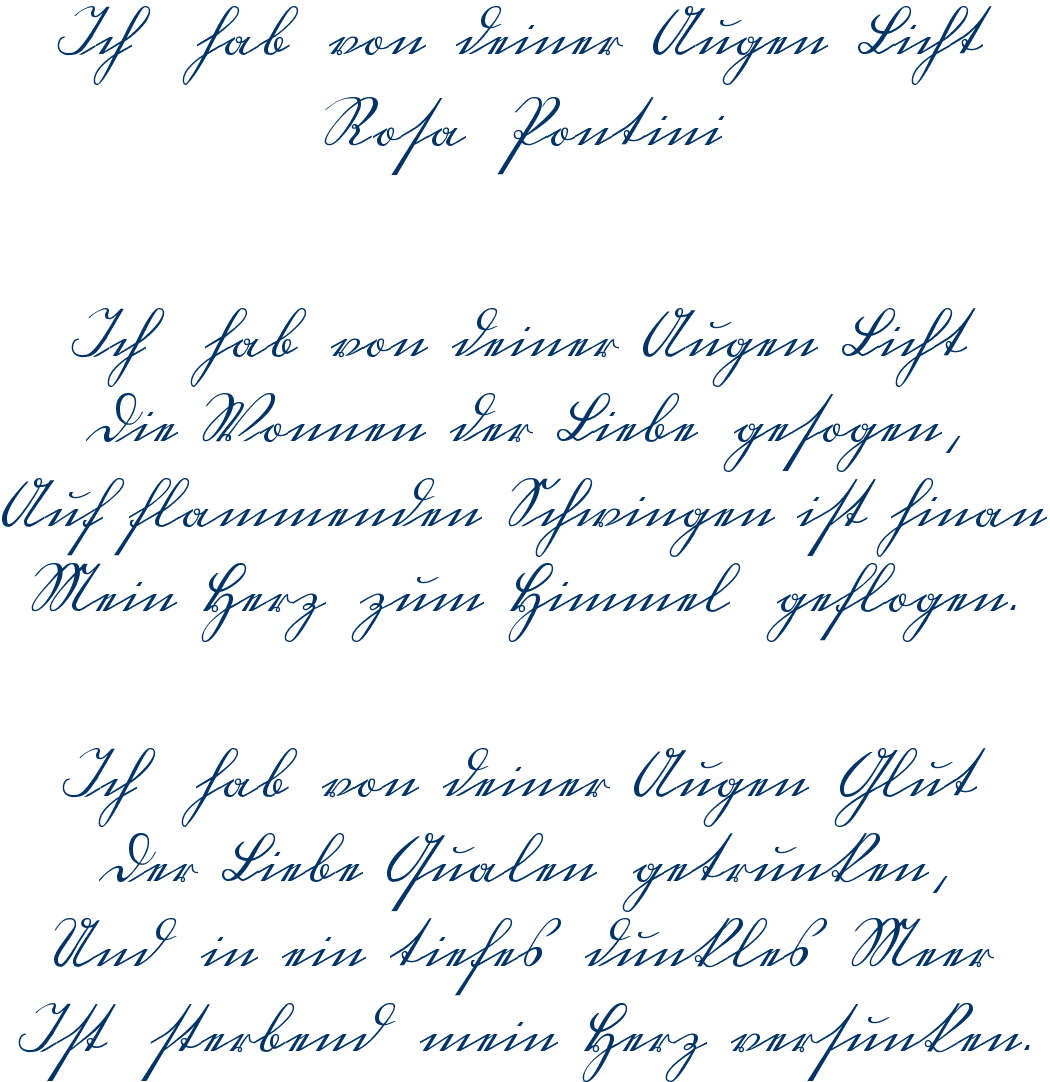 Ich hab von deiner Augen Licht
Rosa Pontini
Ich hab von deiner Augen Licht
Die Wonnen der Liebe gesogen,
Auf flammenden Schwingen ist hinan
Mein Herz zum Himmel geflogen.
Ich hab von deiner Augen Glut
Der Liebe Qualen getrunken,
Und in ein tiefes dunkles Meer
Ist sterbend mein Herz versunken.